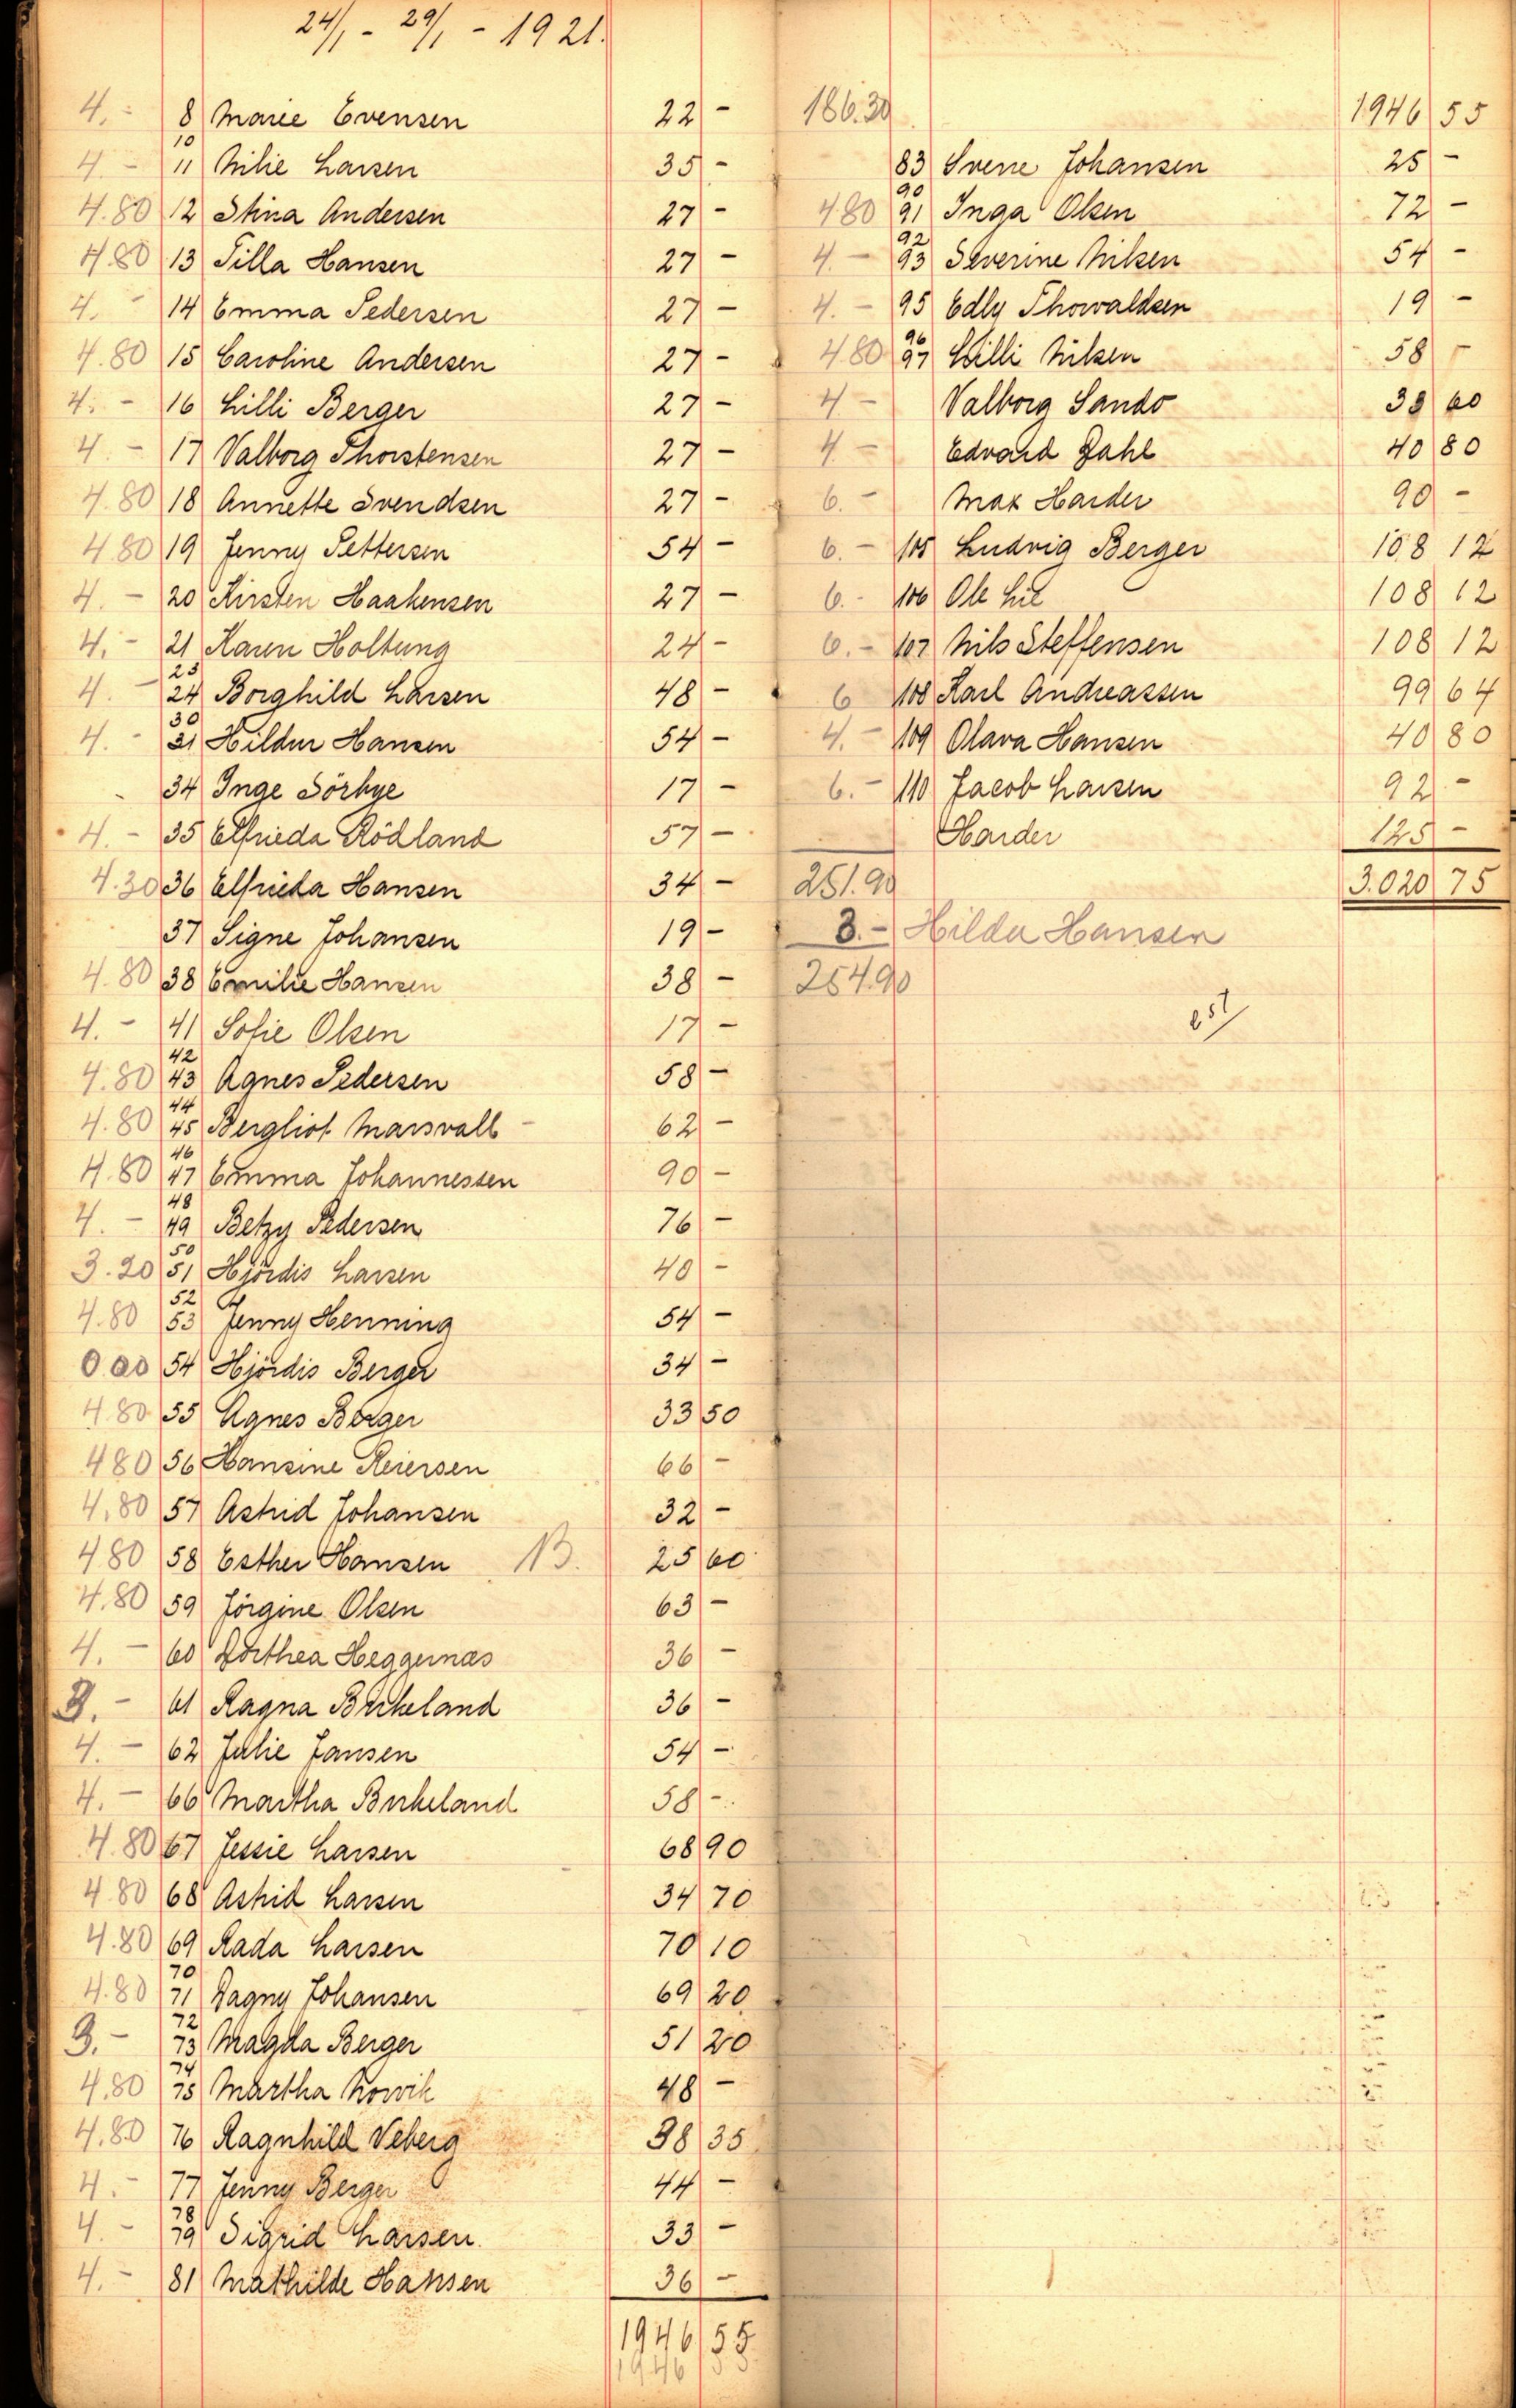 24/1 - 29/1 - 1921.
4.- 8 Marie Evensen 22 -
4.- 10 11 Milie Larsen 35 -
4.80 12 Stina Andersen 27 -
4.80 13 Tilla Hansen 27 -
4. - 14 Emma Pedersen 27 -
4.80 15 Caroline Andersen 27 -
4. - 16 Lilli Berger 27 -
4 - 17 Valborg Thorstensen 27 -
4.80 18 Annette Svendsen 27 -
4.80 19 Jenny Pettersen 54 -
4. - 20 Kirsten Haakensen 27 -
4. - 21 Karen Holtung 24 -
4. - 23 24 Borghild Larsen 48 -
4. - 30 31 Hildur Hansen 54 -
34 Inge Sörbye 17 -
4. - 35 Elfrieda Rödland 57 -
4.30 36 Elfrieda Hansen 34 -
37 Signe Johansen 19 -
4.80 38 Emilie Hansen 38 -
4. - 41 Sofie Olsen 17 -
4.80 42 43 Agnes Pedersen 58 -
4.80 44 45 Bergliot Marsvall 62 -
4.80 46 47 Emma Johannessen 90 -
4. - 48 49 Betzy Pedersen 76 -
3.20 50 51 Hjördis Larsen 40 -
4.80 52 53 Jenny Henning 54 -
54 Hjördis Berger 34 -
4.80 55 Agnes Berger 33 50
480 56 Hansine Reiersen 66 -
4.80 57 Astrid Johansen 32 -
480 58 Esther Hansen 13. 25 60
4.80 59 Jörgine Olsen 63 -
4. - 60 Dorthea Heggernæs 36 -
3. - 61 Ragna Birkeland 36 -
4. - 62 Julie Jansen 54 -
4. - 66 Martha Birkeland 58 -
4.80 67 Jessie Larsen 68 90
4.80 68 Astrid Larsen 34 70
4.80 69 Rada Larsen 70 10
4.80 70 71 Dagny Johansen 69 20
3. - 72 73 Magda Berger 51 20
4.80 74 75 Martha Norvik 48 -
4.80 76 Ragnhild Veberg 38 35
4. - 77 Jenny Berger 44 -
4. - 78 79 Sigrid Larsen 33 -
4. - 81 Mathilde Hansen 36 -
1946 55
1946 55
186.30 1946 55
83 Svene Johansen 25 -
480 90 91 Inga Olsen 72 -
4. - 92 93 Severine Nilsen 54 -
4. - 95 Edly Thorvaldsen 19 -
480 96 97 Lilli Nilsen 58 -
4 - Valborg Sando 38 60
4. - Edvard Dahl 40 80
6. - Max Harder 90 -
6. - 105 Ludvig Berger 108 12
6. - 106 Ole Lie 108 12
6. - 107 Nils Steffensen 108 12
6 108 Karl Andreassen 99 64
4. - 109 Olava Hansen 40 80
6. - 110 Jacob Larsen 92 -
Harder 125 -
251.90 3.020 75
3.- Hilda Hansen
254.90